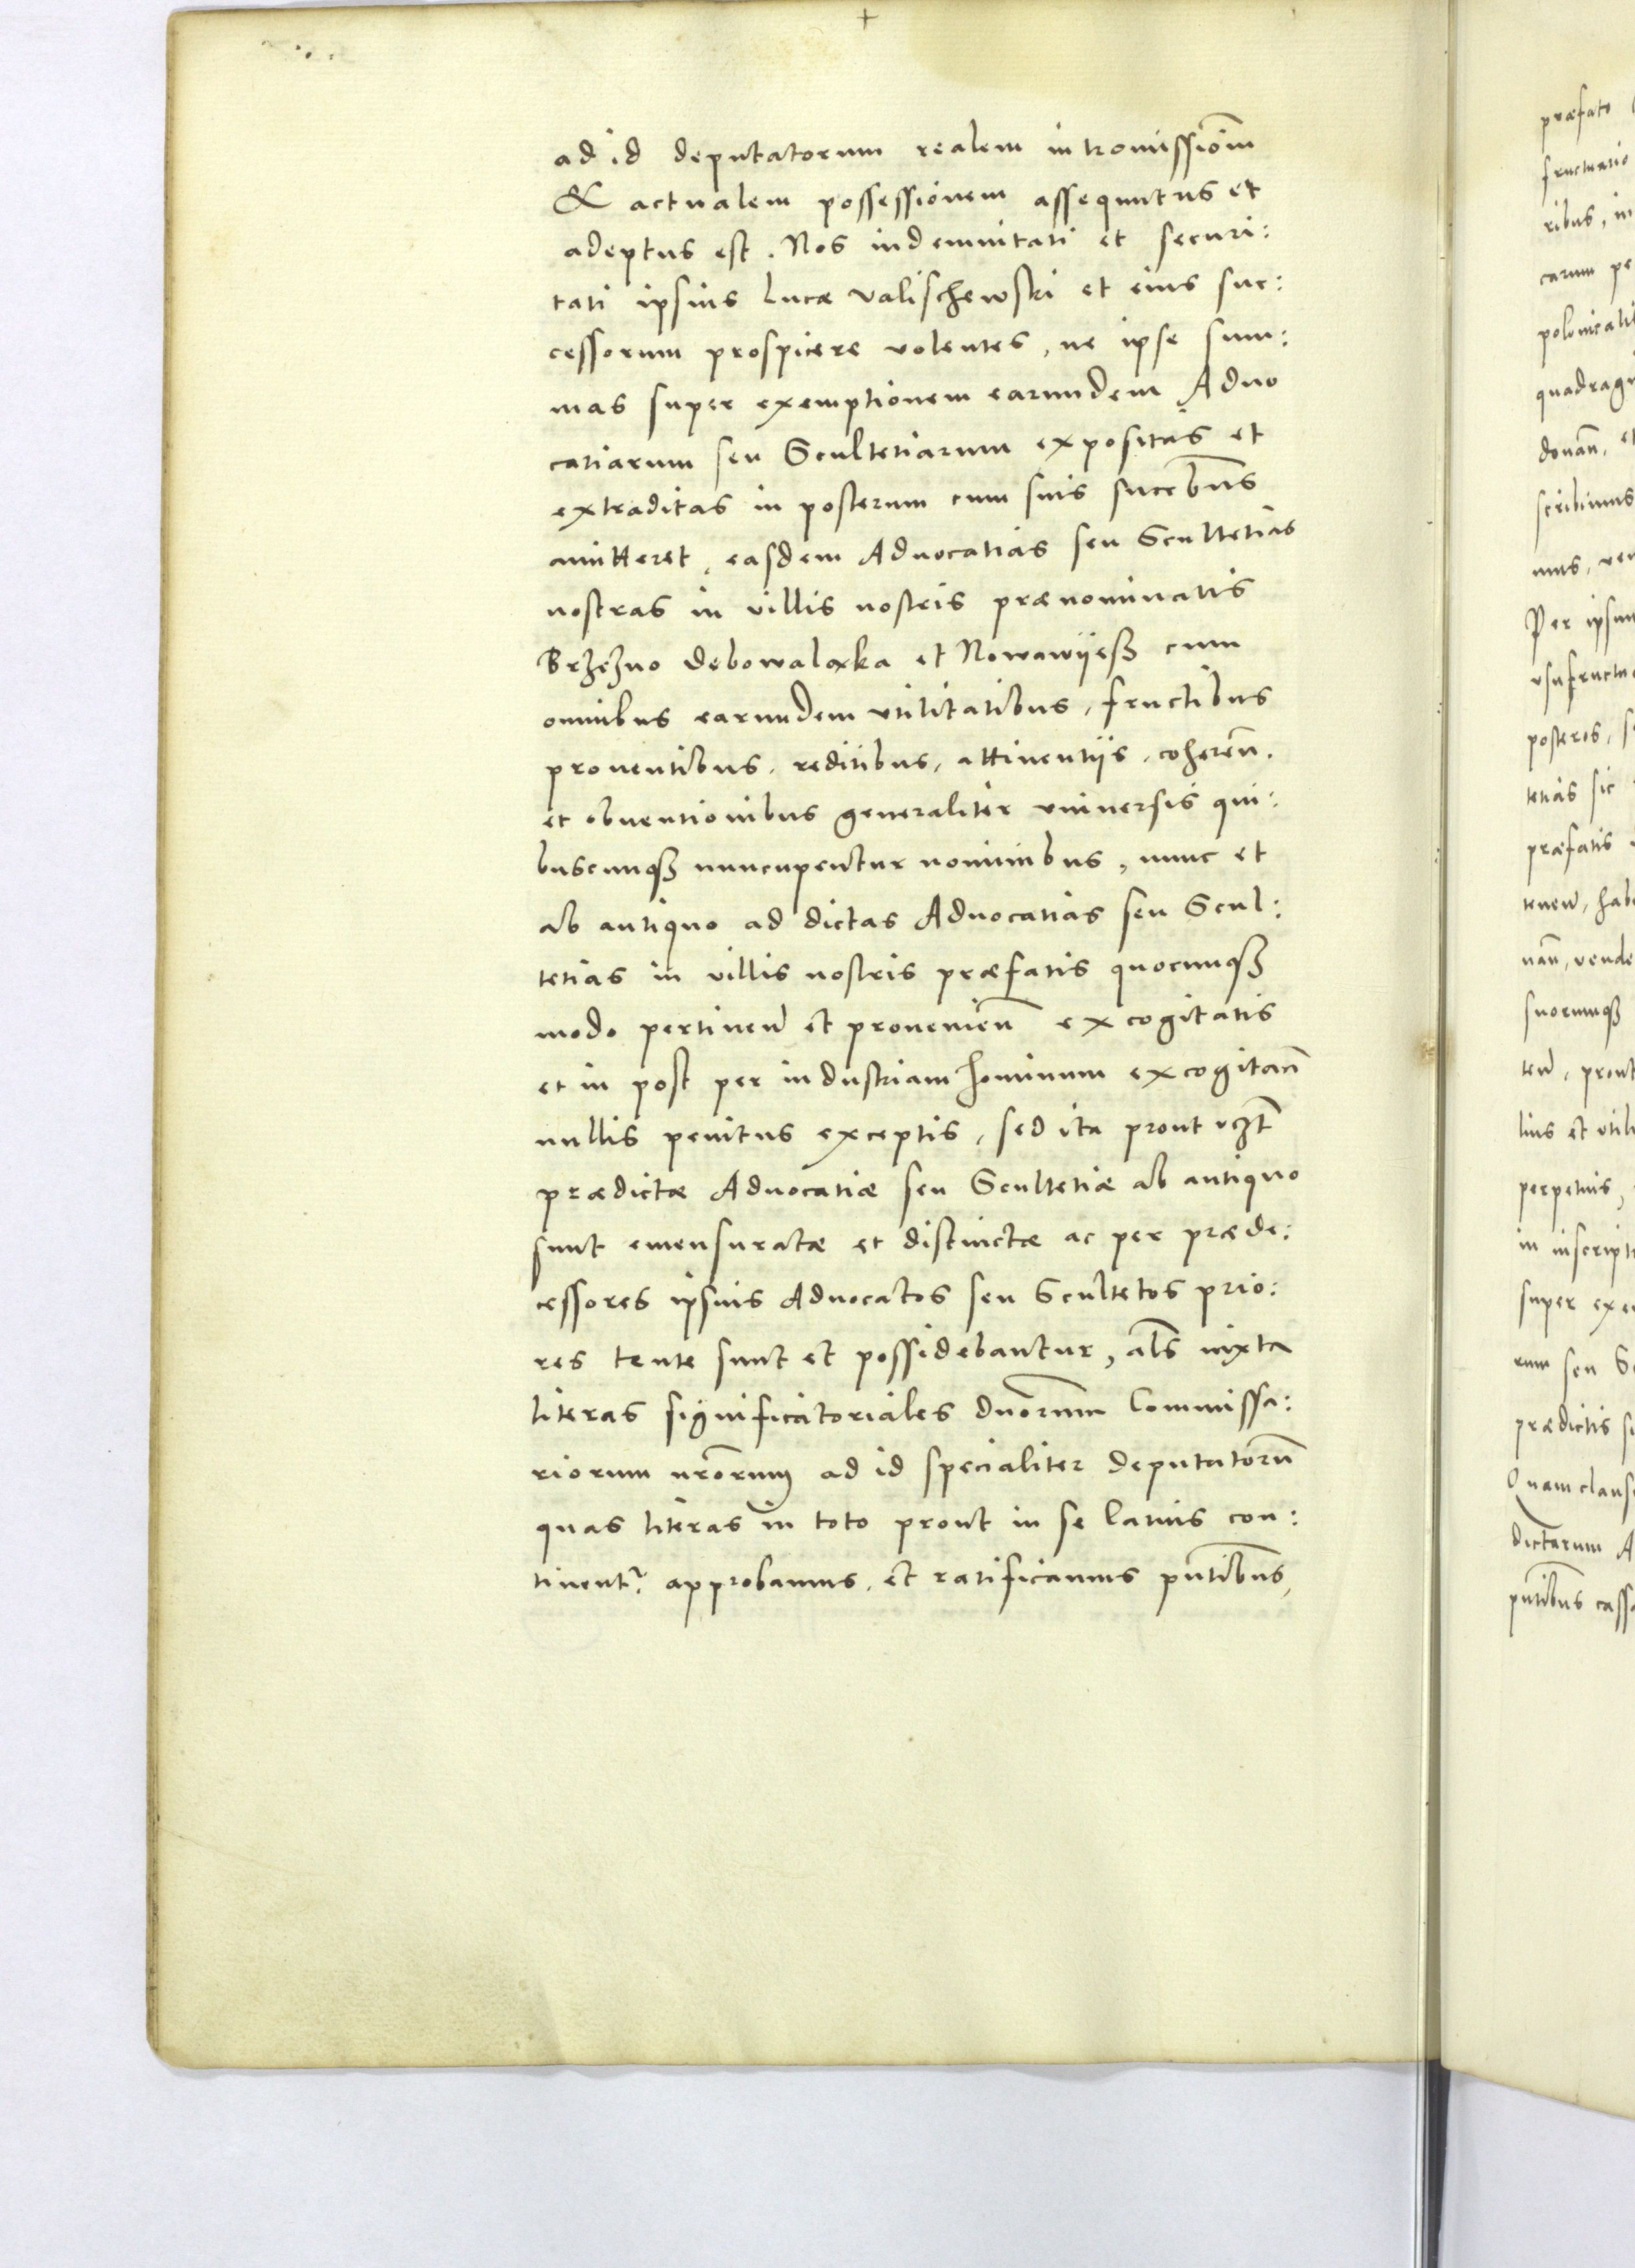 ad id deputatorum realem intromissiōm
& actualem possessionem assequutus et
adeptus est. Nos indemnitati et securi:
tati ipsius Lucæ Valischewski et eius suc:
cessorum prospicere volentes, ne ipse sum:
mas super exemptionem earundem Aduo
catiarum seu Scultetiarum expositas et
extraditas in posterum cum suis succb̄us
amitteret, easdem Aduocatias seu Scultetias
nostras in villis nostris prænominatis
Brzezno Debowalaka et Nowawijesz cum
omnibus earundem vtilitatibus, fructibus
prouentibus, reditibus, attinentijs, coheren̄.
et obuentionibus generaliter vniuersis qui:
buscunqȝ nuncupentur nominibus, nunc et
ab antiquo ad dictas Aduocatias seu Scul:
tetias in villis nostris præfatis quocunqȝ
modo pertinen̄ et prouenien̄ excogitatis
et in post per industriam hominum excogitan̄
nullis penitus exceptis, sed ita prout vꝫt
prædictæ Aduocatiæ seu Scultetiæ ab antiquo
sunt emensuratæ et distinctæ ac per præde:
cessores ipsius Aduocatos seu Scultetos prio:
res tente sunt et possidebantur, al̄s iuxta
literas significatoriales duorum Commissa:
riorum nr̄orum ad id specialiter deputatorū
quas literas in toto prout in se latius con:
tinentr̄ approbamus, et ratificamus pn̄tibus,
præfato
fructuatio
ribus, in
carum pe
polonicali
quadragi
donan̄, et
scribimus
mus, ven
Per ipsum
vsufructu
posteros, s
tetias sic
præfatis
tenen̄, hab
nan̄, vende
suorumqȝ
ten̄, prout
lius et vtili
perpetuis,
in inscripti
super exe
rum seu S
prædictis s
Quam claus
dictarum A
pn̄tibus cass